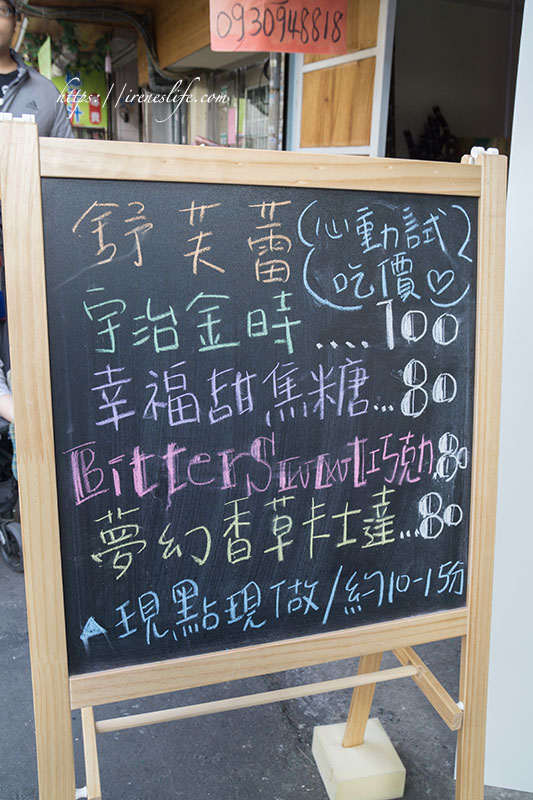 0930948818
https://ireneslife.com
舒芙蕾(心動試吃價♡)
宇治金時....100
幸福甜焦糖...80
Bittersweet巧克力.80
夢幻香草卡士達...80
▲現點現做/約10-15分